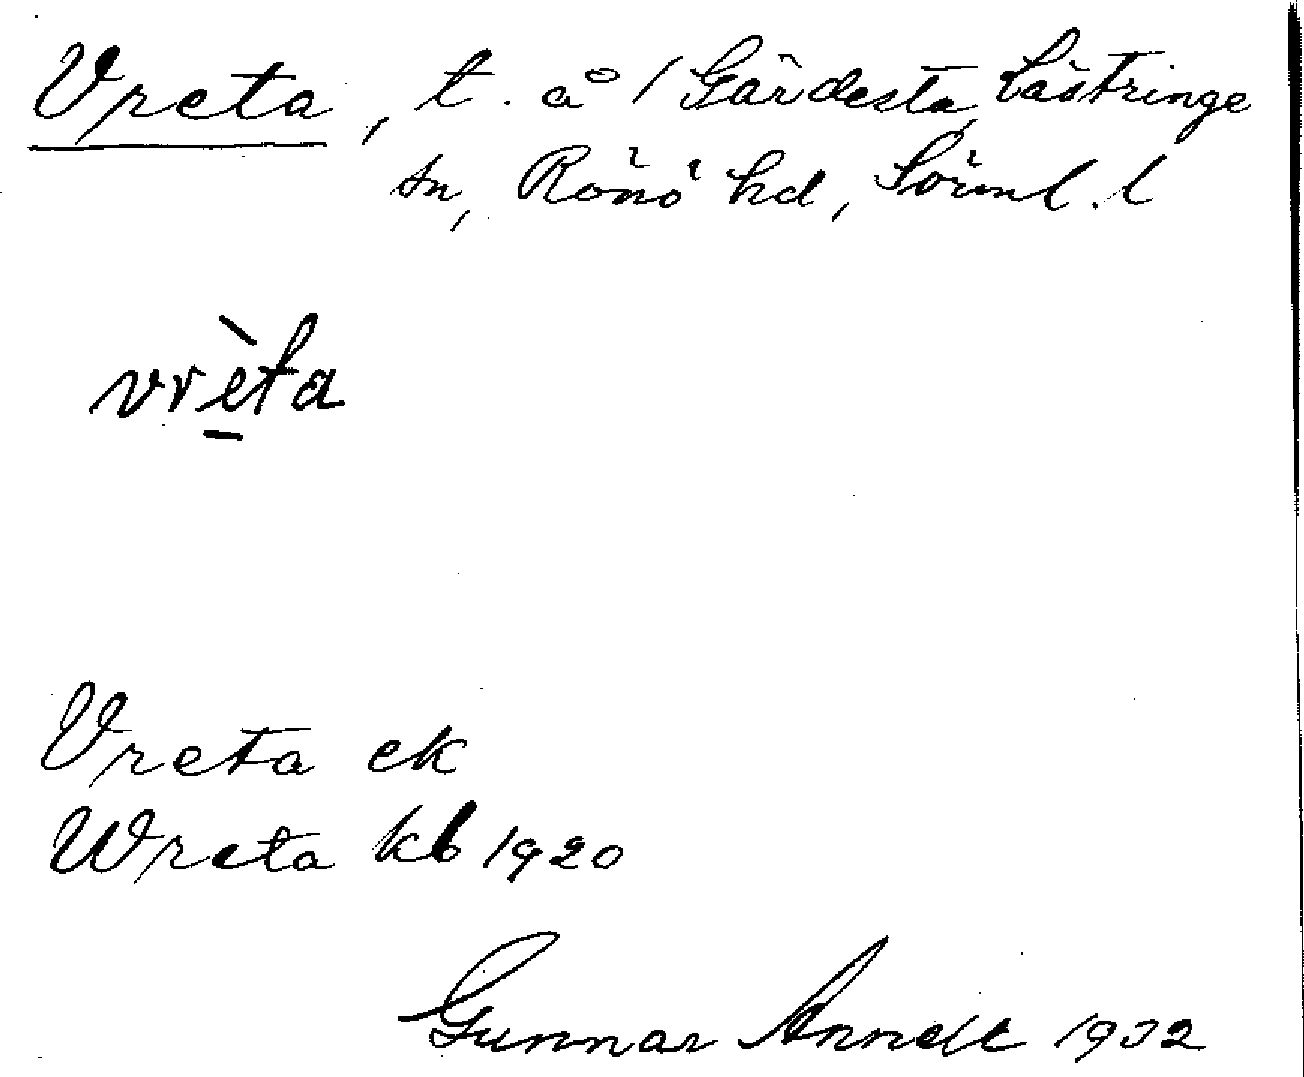 Vreta, t. å 1 Gärdesta, Lästringe
sn, Rönö hd, Sörml. l
vrèta
Vreta ek
Wreta kb 1920
Gunnar Annell 1932